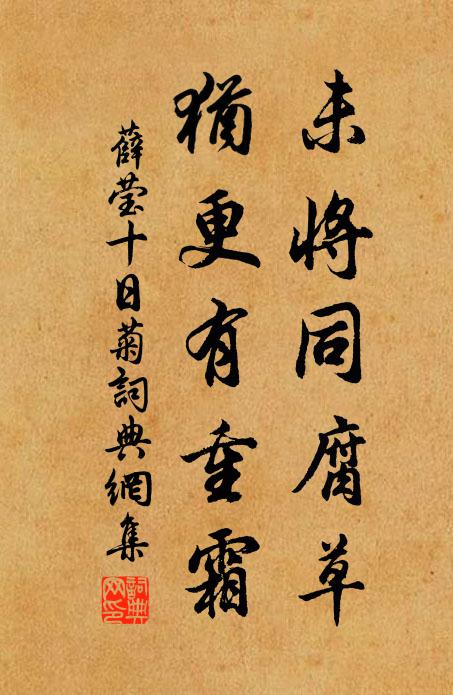 未将同腐草
犹更有重霜
薛莹十日菊詞典網集
詞典
网印